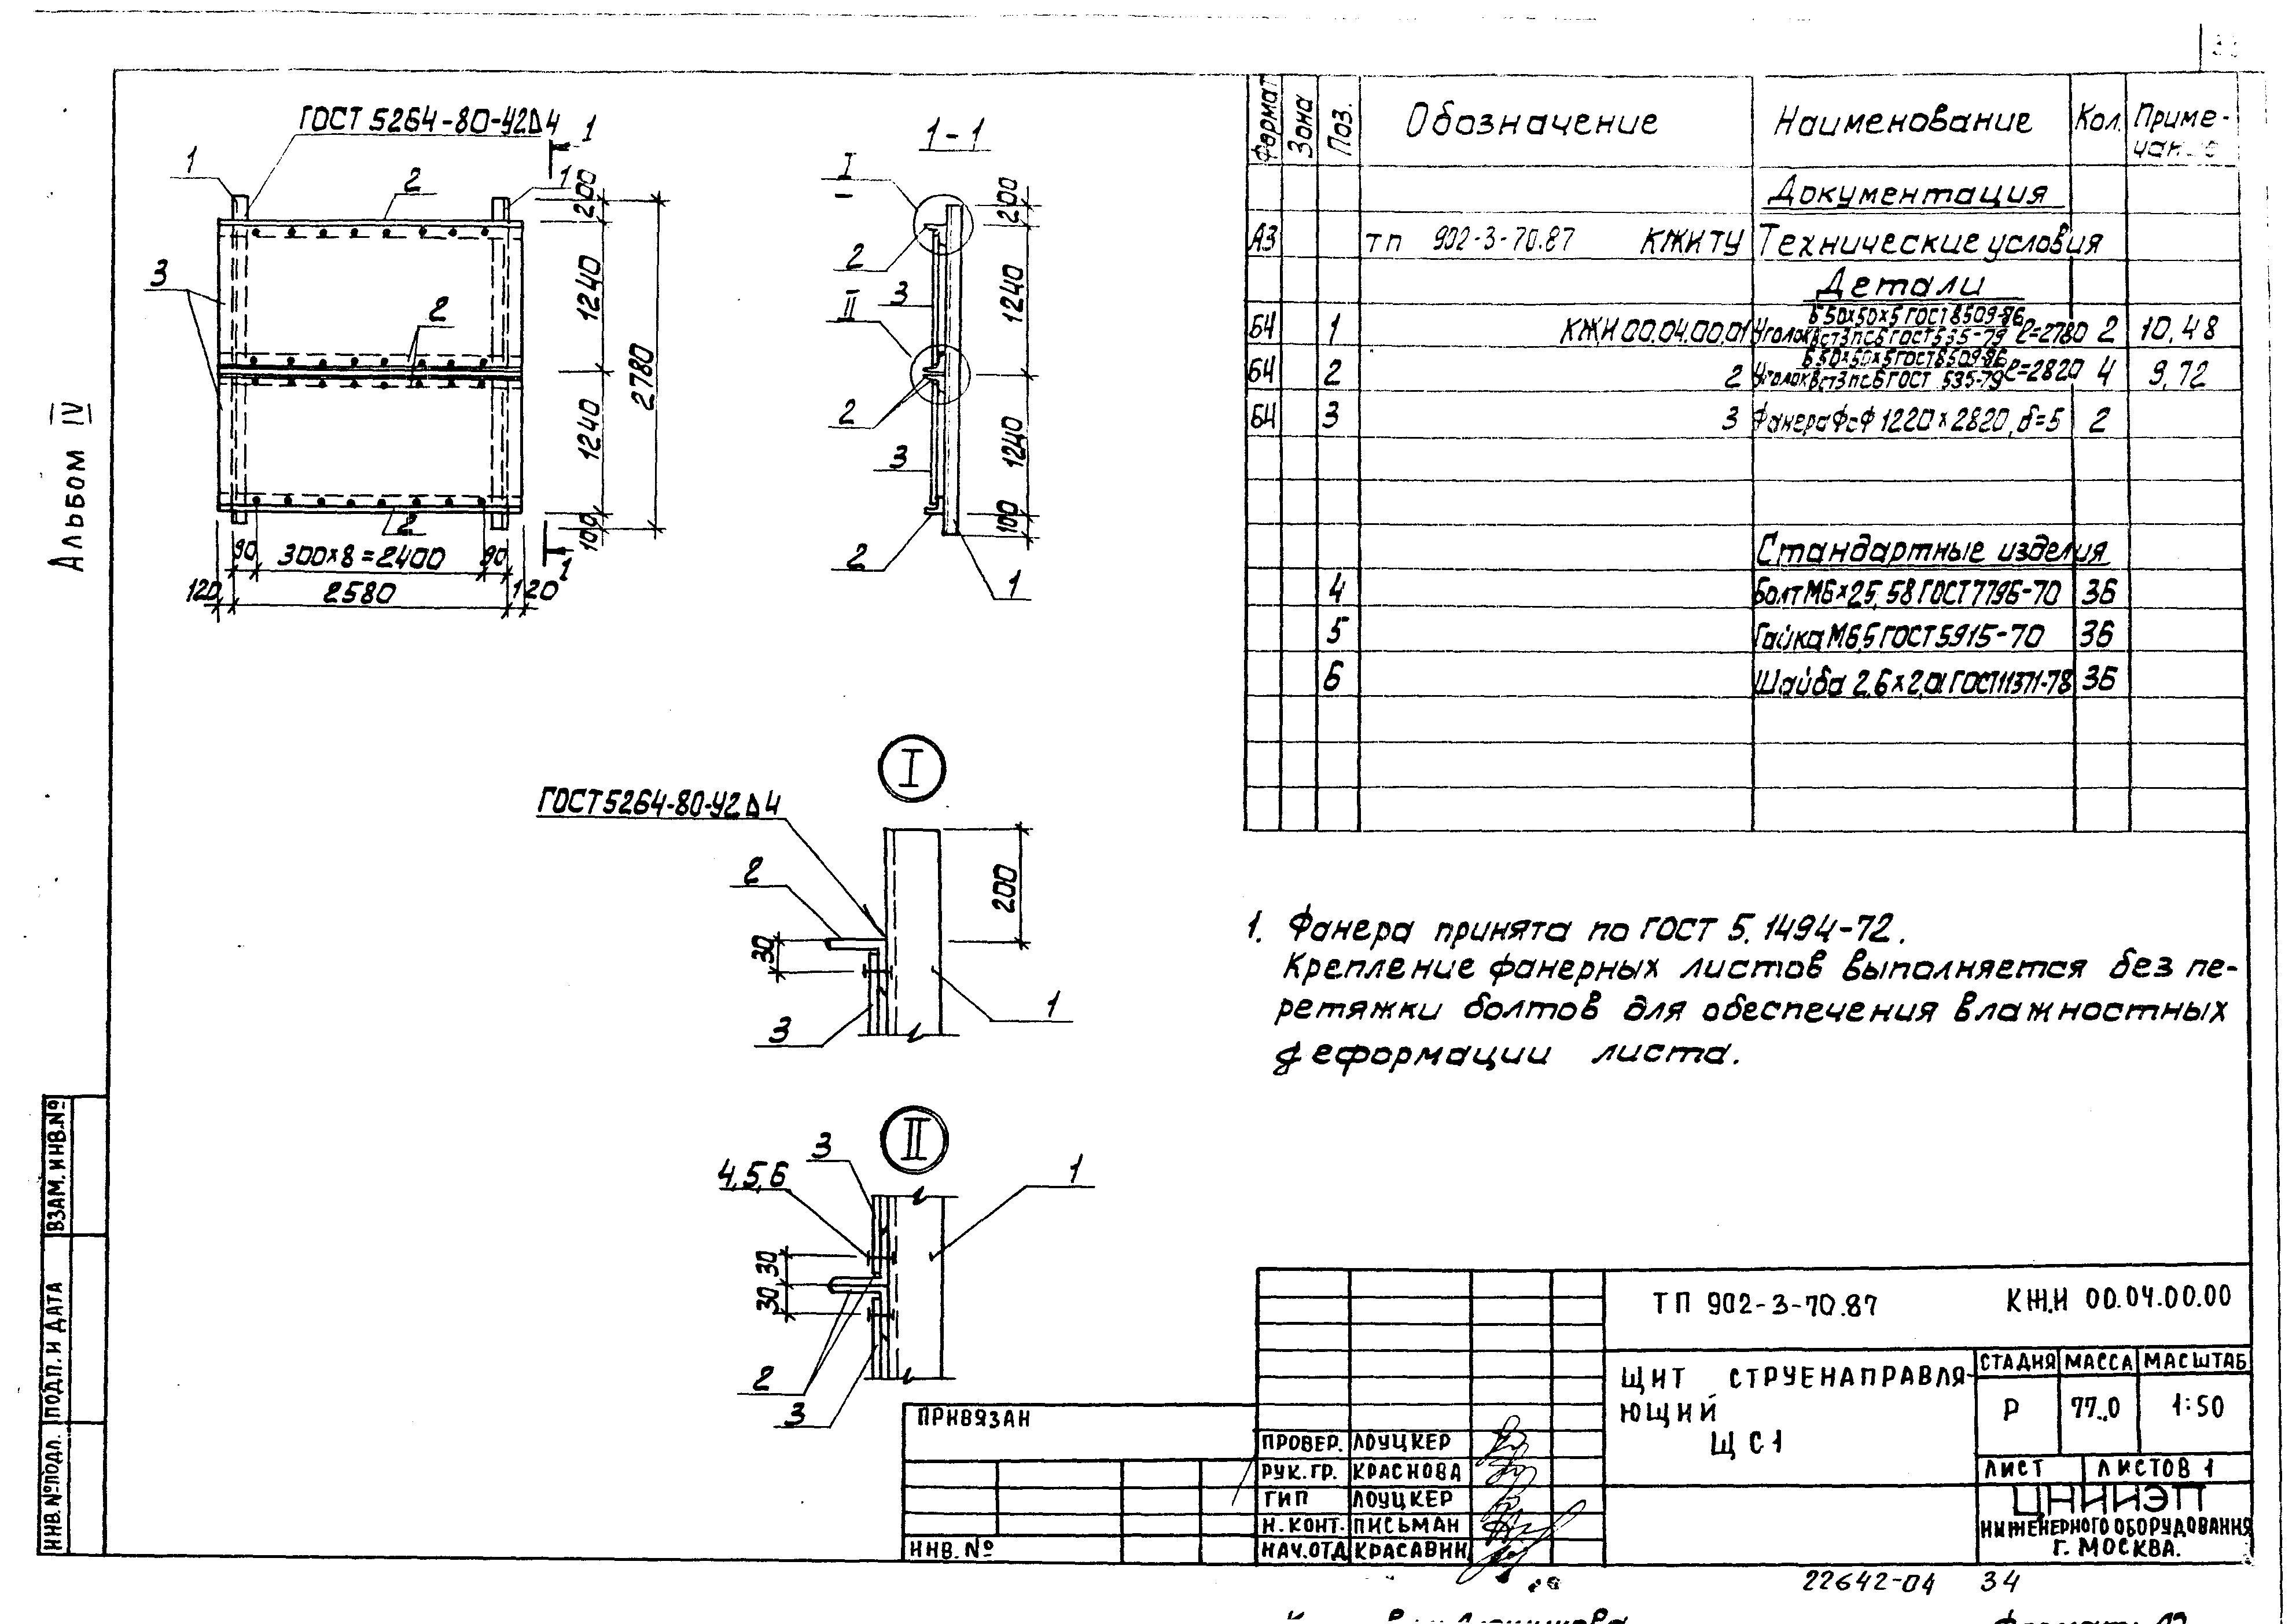 Альбом IV
ГОСТ 5264-80-У2Δ4
1
1
1
2
3
2
2
200
1240
1240
100
2780
90
300×8=2400
90
1
120
2580
120
1-1
I
2
3
II
2
3
2
1
200
1240
1240
100
I
ГОСТ 5264-80-У2Δ4
2
30
3
1
200
II
3
4,5,6
1
30
30
2
3
Формат Зона Поз. Обозначение Наименование Кол. Приме-
Документация
А3 ТП 902-3-70.87 КЖИ ТУ Технические условия
Детали
Б4 1 КЖИ 00.04.00.01 Уголок Б 50×50×5 ГОСТ 8509-86 / ВСт3пс6 ГОСТ 535-79 ℓ=2780 2 10,48
Б4 2 2 Уголок Б 50×50×5 ГОСТ 8509-86 / ВСт3пс6 ГОСТ 535-79 ℓ=2820 4 9,72
Б4 3 3 Фанера ФсФ 1220×2820, δ=5 2
Стандартные изделия
4 Болт М6×25.58 ГОСТ 7796-70 36
5 Гайка М6.5 ГОСТ 5915-70 36
6 Шайба 2.6×2,01 ГОСТ 11371-78 36
1. Фанера принята по ГОСТ 5.1494-72.
Крепление фанерных листов выполняется без пе-
ретяжки болтов для обеспечения влажностных
деформации листа.
ВЗАМ.ИНВ.№
ПОДП. И ДАТА
ИНВ.№ПОДЛ.
ПРИВЯЗАН
ИНВ.№
ТП 902-3-70.87 КЖИ 00.04.00.00
ЩИТ СТРУЕНАПРАВЛЯ-
ЮЩИЙ
ЩС1
СТАДИЯ МАССА МАСШТАБ
Р 77,0 1:50
ЛИСТ ЛИСТОВ 1
ПРОВЕР. ЛОУЦКЕР
РУК.ГР. КРАСНОВА
ГИП ЛОУЦКЕР
Н.КОНТ. ПИСЬМАН
НАЧ.ОТД КРАСАВИН
ЦНИИЭП
ИНЖЕНЕРНОГО ОБОРУДОВАНИЯ
Г. МОСКВА.
22642-04 34